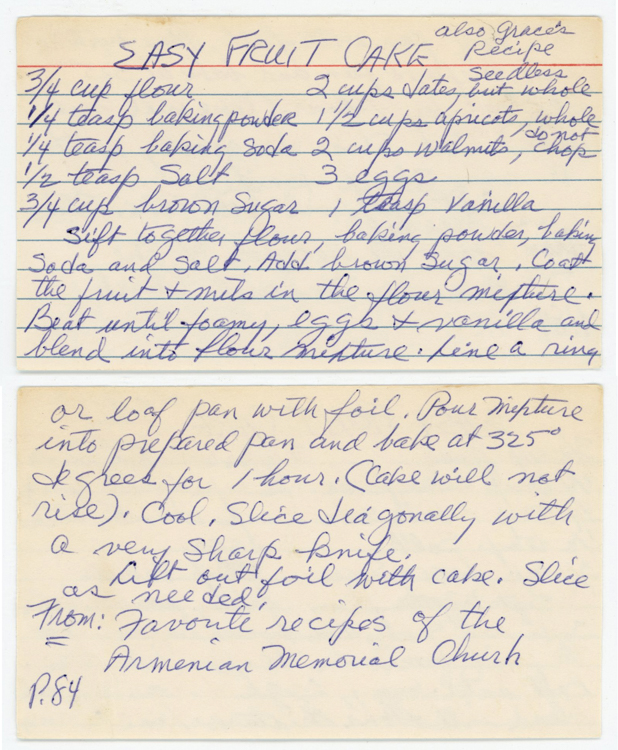 also Grace's
EASY FRUIT CAKE Recipe
Seedless
3/4 cup flour 2 cups dates, but whole
1/4 teasp baking powder 1 1/2 cups apricots, whole
do not
1/4 teasp baking soda 2 cups walnuts, chop
1/2 teasp Salt 3 eggs
3/4 cup brown Sugar 1 teasp Vanilla
Sift together flour, baking powder, baking
Soda and Salt. Add brown Sugar. Coat
the fruit + nuts in the flour mixture.
Beat until foamy, eggs + vanilla and
blend into flour mixture. Line a ring
or loaf pan with foil. Pour mixture
into prepared pan and bake at 325°
degrees for 1 hour. (Cake will not
rise). Cool. Slice diagonally with
a very Sharp knife.
Lift out foil with cake. Slice
as needed.
From: Favorite recipes of the
Armenian Memorial Churh
P. 84